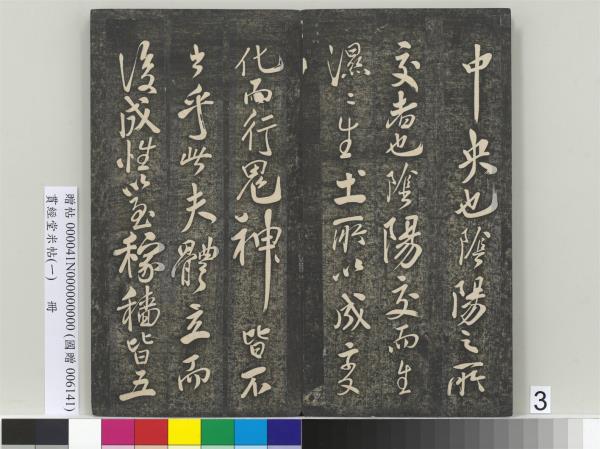 中央也陰陽之所
交者也陰陽交而生
濕濕生土所以成變
化而行鬼神皆不
出乎此夫體立而
後成性以至稼穡皆五
贈帖 000041N000000000 (國贈 006141)
賞經堂米帖(一) 冊
3